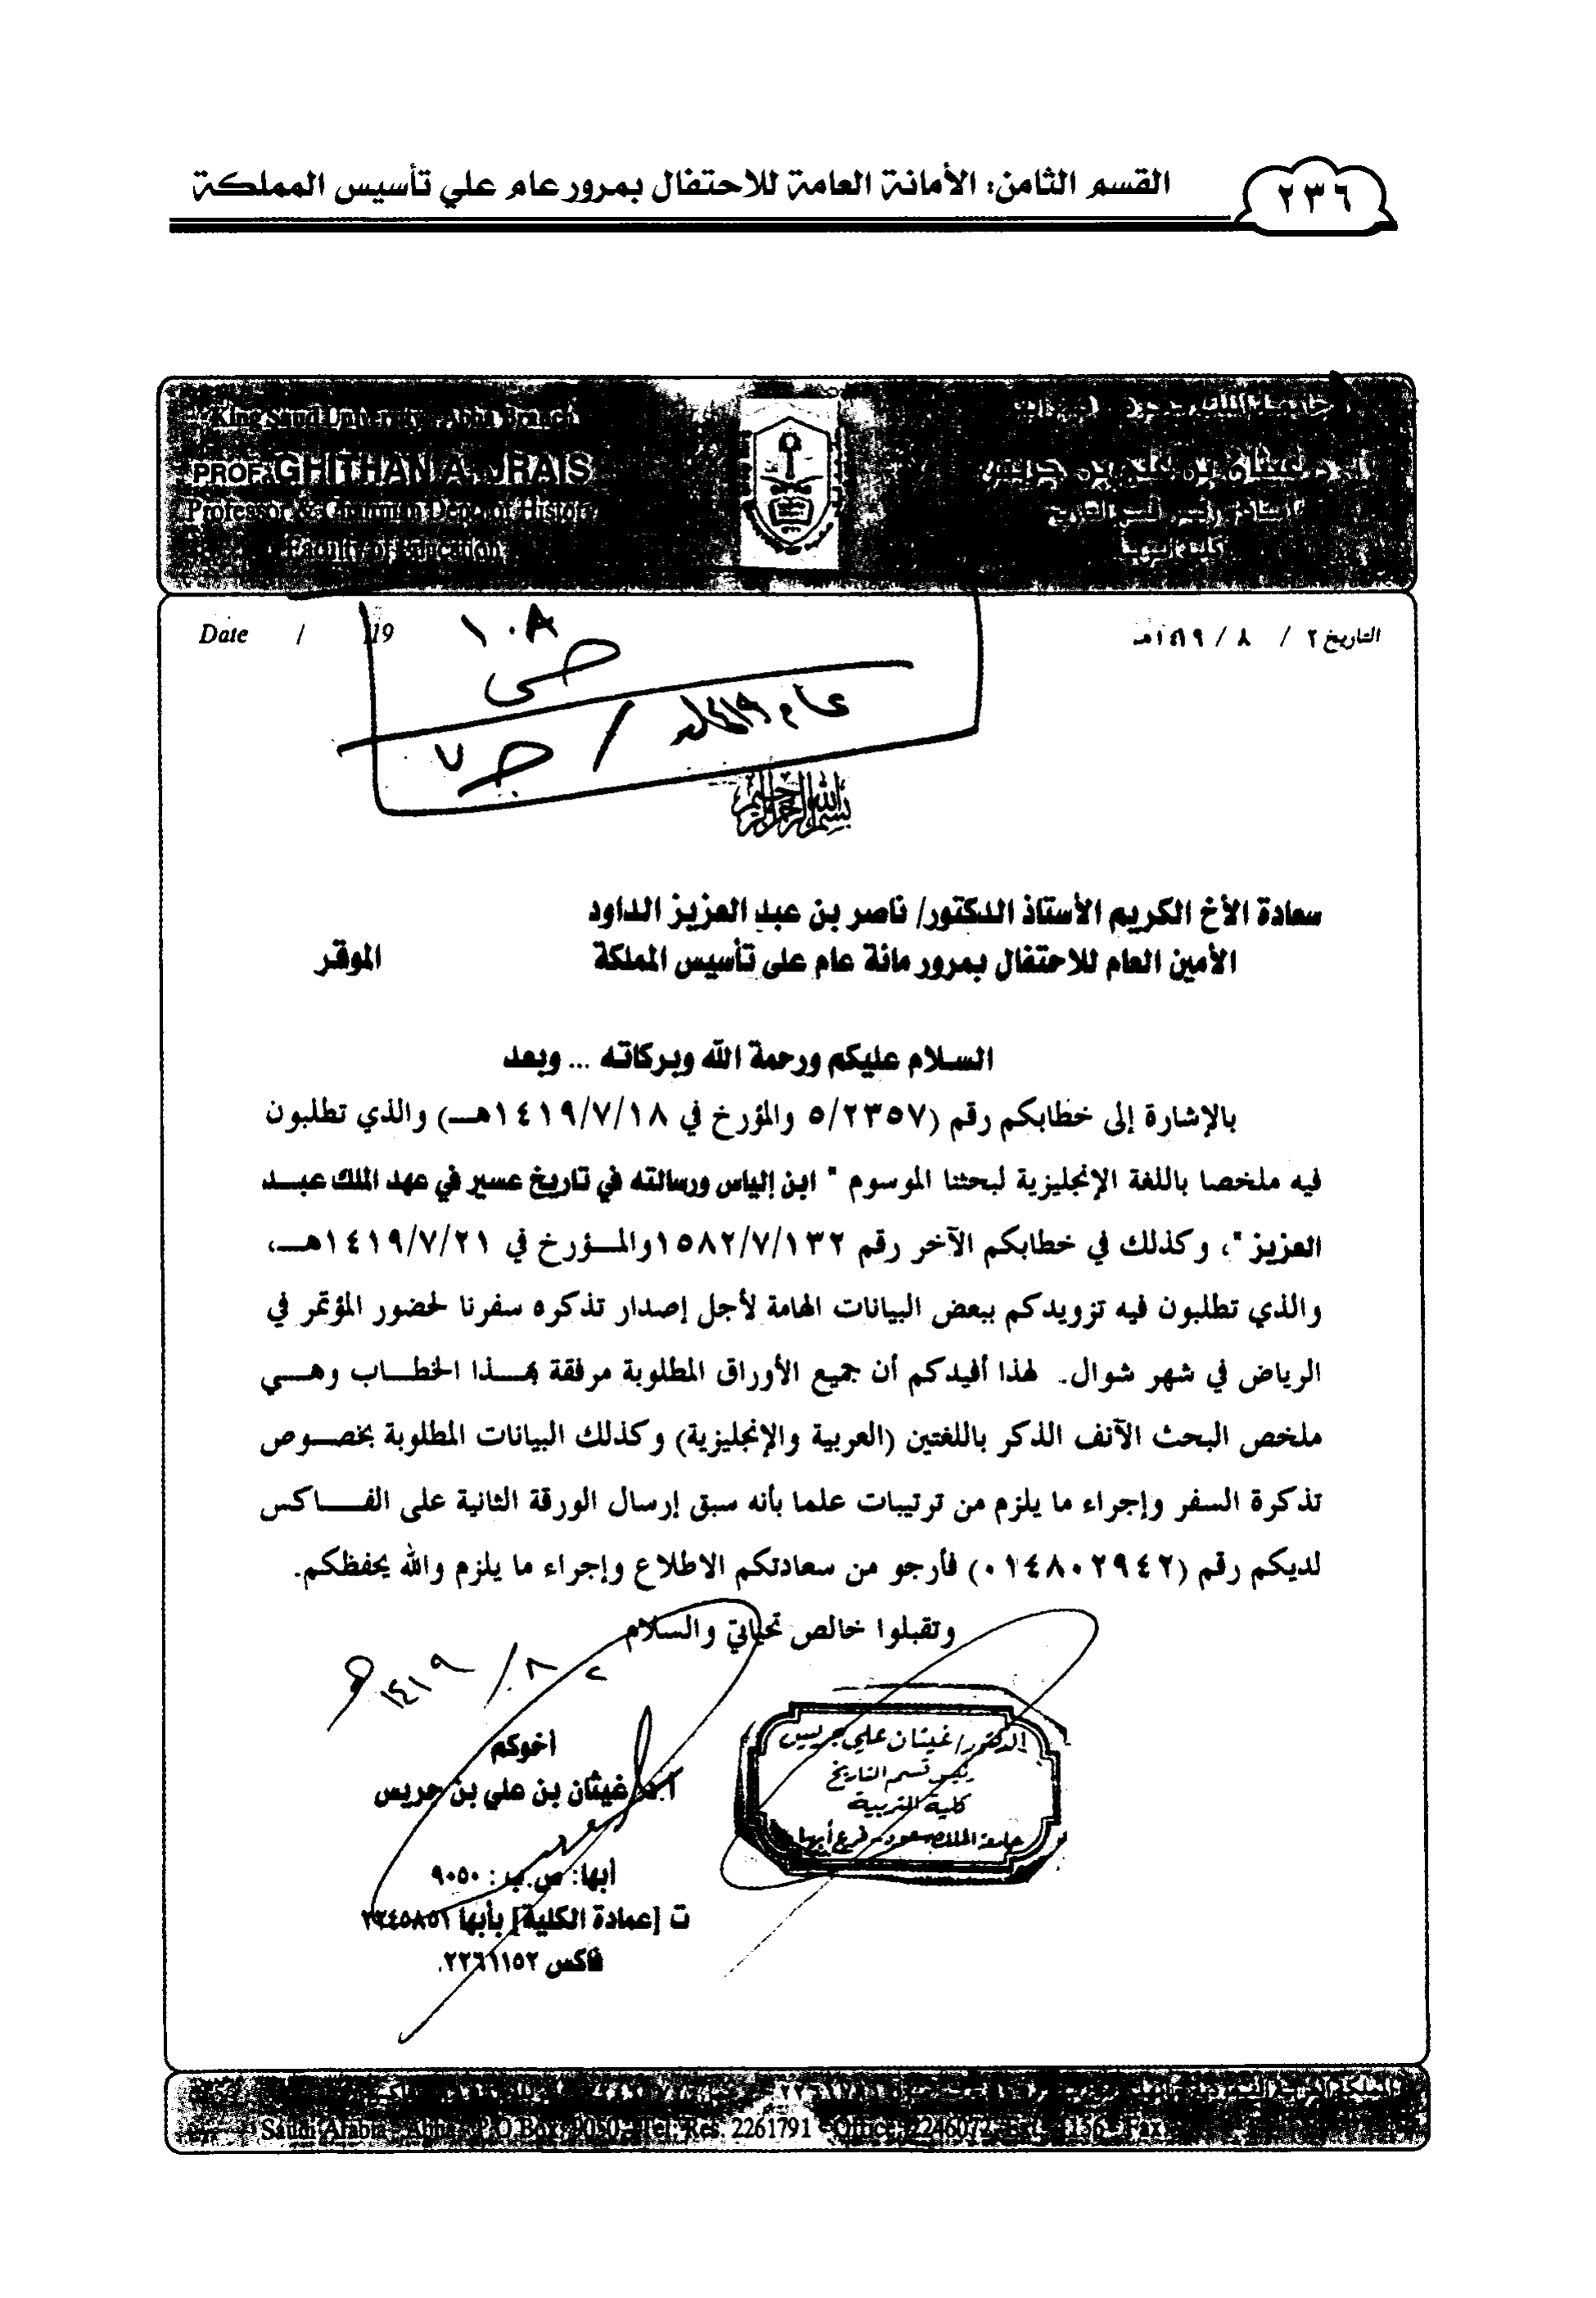 ٢٣٦
القسم الثامن: الأمانة العامة للاحتفال بمرور عام علي تأسيس المملكة
King Saud University - Abha Branch
PROF. GHITHAN A. JRAIS
Professor & Chairman Dept. of History
Faculty of Education
أ.د. غيثان بن علي بن جريس
كلية التربية
التاريخ ٢ / ٨ / ١٤١٩هـ
Date / / 19
١٠٨
عام ١٤١٩هـ / جـ ٧
بسم الله الرحمن الرحيم
سعادة الأخ الكريم الأستاذ الدكتور/ ناصر بن عبد العزيز الداود
الأمين العام للاحتفال بمرور مائة عام على تأسيس المملكة الموقر
السلام عليكم ورحمة الله وبركاته ... وبعد
بالإشارة إلى خطابكم رقم (٥/٢٣٥٧ والمؤرخ في ١٤١٩/٧/١٨هـ) والذي تطلبون
فيه ملخصا باللغة الإنجليزية لبحثنا الموسوم " ابن إلياس ورسالته في تاريخ عسير في عهد الملك عبد
العزيز "، وكذلك في خطابكم الآخر رقم ١٥٨٢/٧/١٣٢والمؤرخ في ١٤١٩/٧/٢١هـ،
والذي تطلبون فيه تزويدكم ببعض البيانات الهامة لأجل إصدار تذكره سفرنا لحضور المؤتمر في
الرياض في شهر شوال. لهذا أفيدكم أن جميع الأوراق المطلوبة مرفقة بهذا الخطاب وهي
ملخص البحث الآنف الذكر باللغتين (العربية والإنجليزية) وكذلك البيانات المطلوبة بخصوص
تذكرة السفر وإجراء ما يلزم من ترتيبات علما بأنه سبق إرسال الورقة الثانية على الفاكس
لديكم رقم (٠١٤٨٠٢٩٤٢) فأرجو من سعادتكم الاطلاع وإجراء ما يلزم والله يحفظكم.
وتقبلوا خالص تحياتي والسلام
٢ / ٨ / ١٤١٩هـ
أخوكم
أ.د/ غيثان بن علي بن جريس
الدكتور/ غيثان علي جريس
رئيس قسم التاريخ
كلية التربية
جامعة الملك سعود - فرع أبها
أبها: ص.ب: ٩٠٥٠
ت [عمادة الكلية] بأبها ٢٢٤٥٨٥١
فاكس ٢٢٦١١٥٢.
Saudi Arabia - Abha - P.O Box. 9050 - Tel: Res. 2261791 - Office: 2246072 Ext. 1156 - Fax